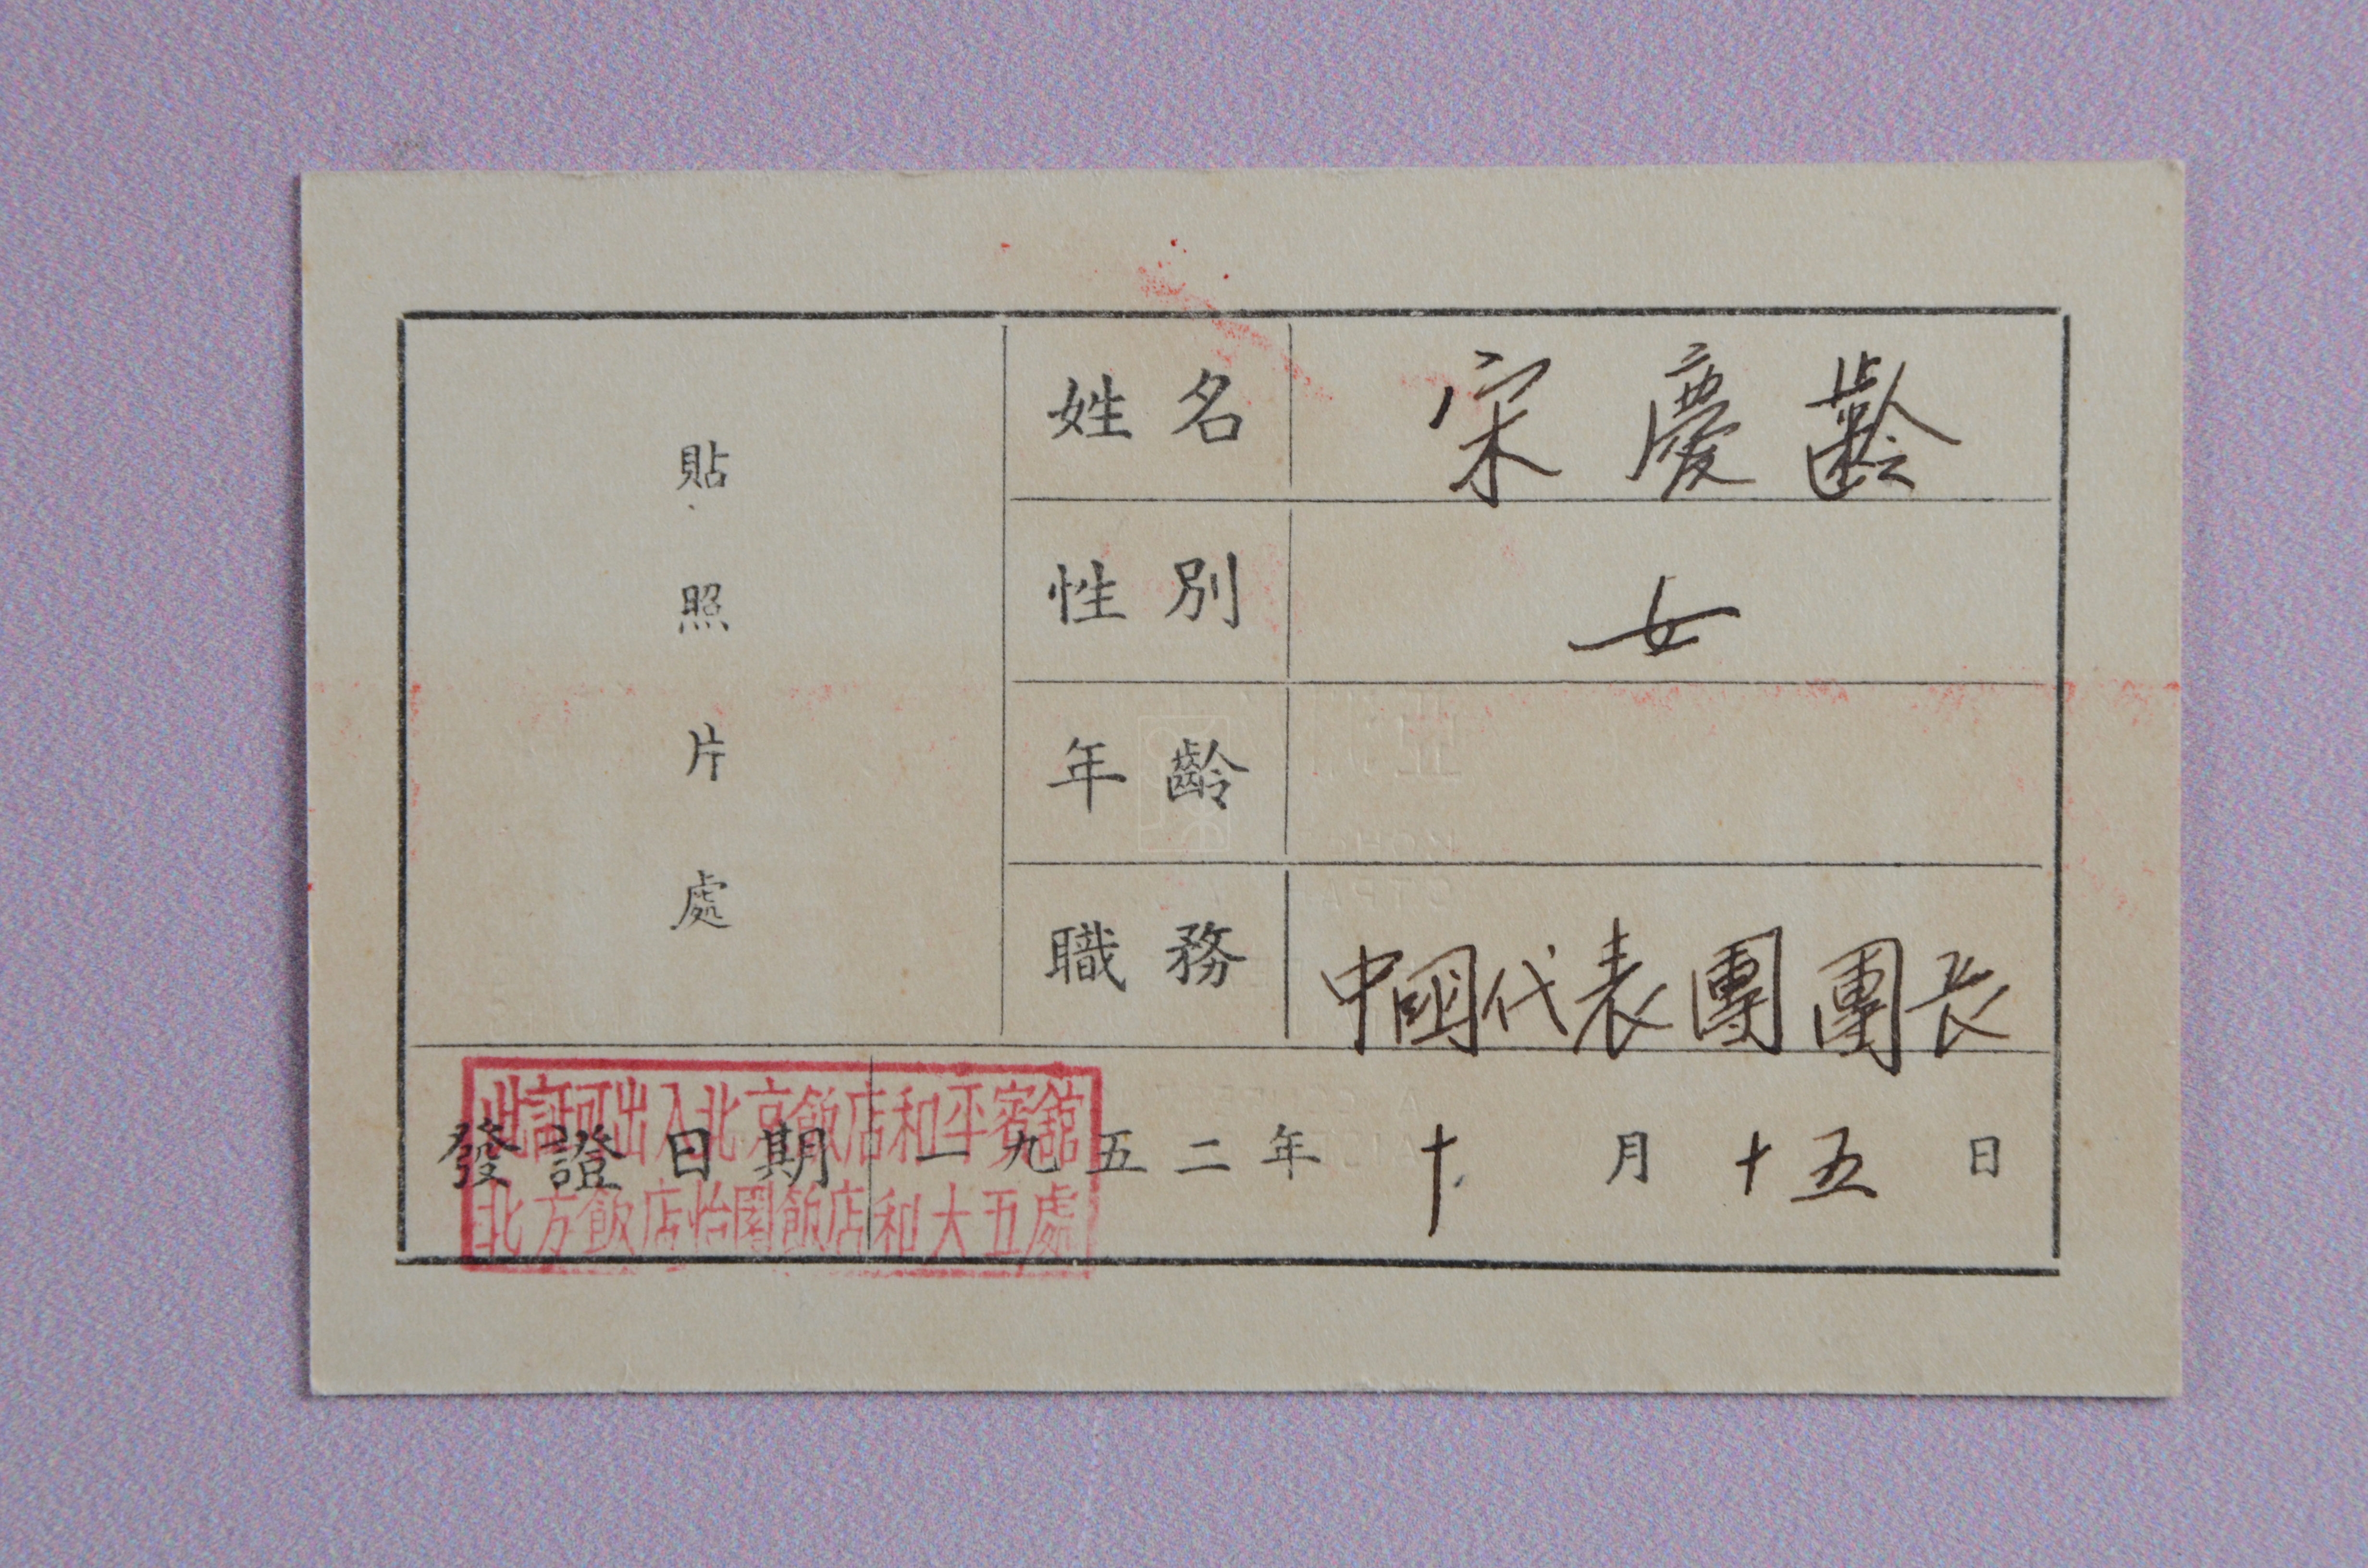 貼照片處
姓名 宋慶齡
性別 女
年齡
職務 中國代表團團長
發證日期 一九五二年十月十五日
此証可出入北京飯店和平賓館
北方飯店怡園飯店和大五處